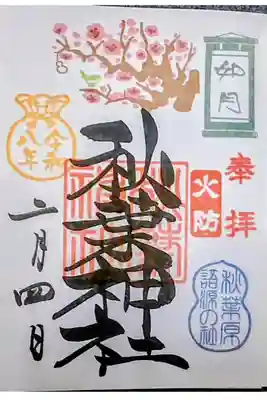 如月
奉拝
火防
秋葉原
語源の社
秋葉神社
令和
八年
二月四日